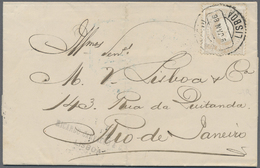 Illmos Senrs.
M. V. Lisboa & Ca
143, Rua da Quitanda,
Rio de Janeiro
LISBOA